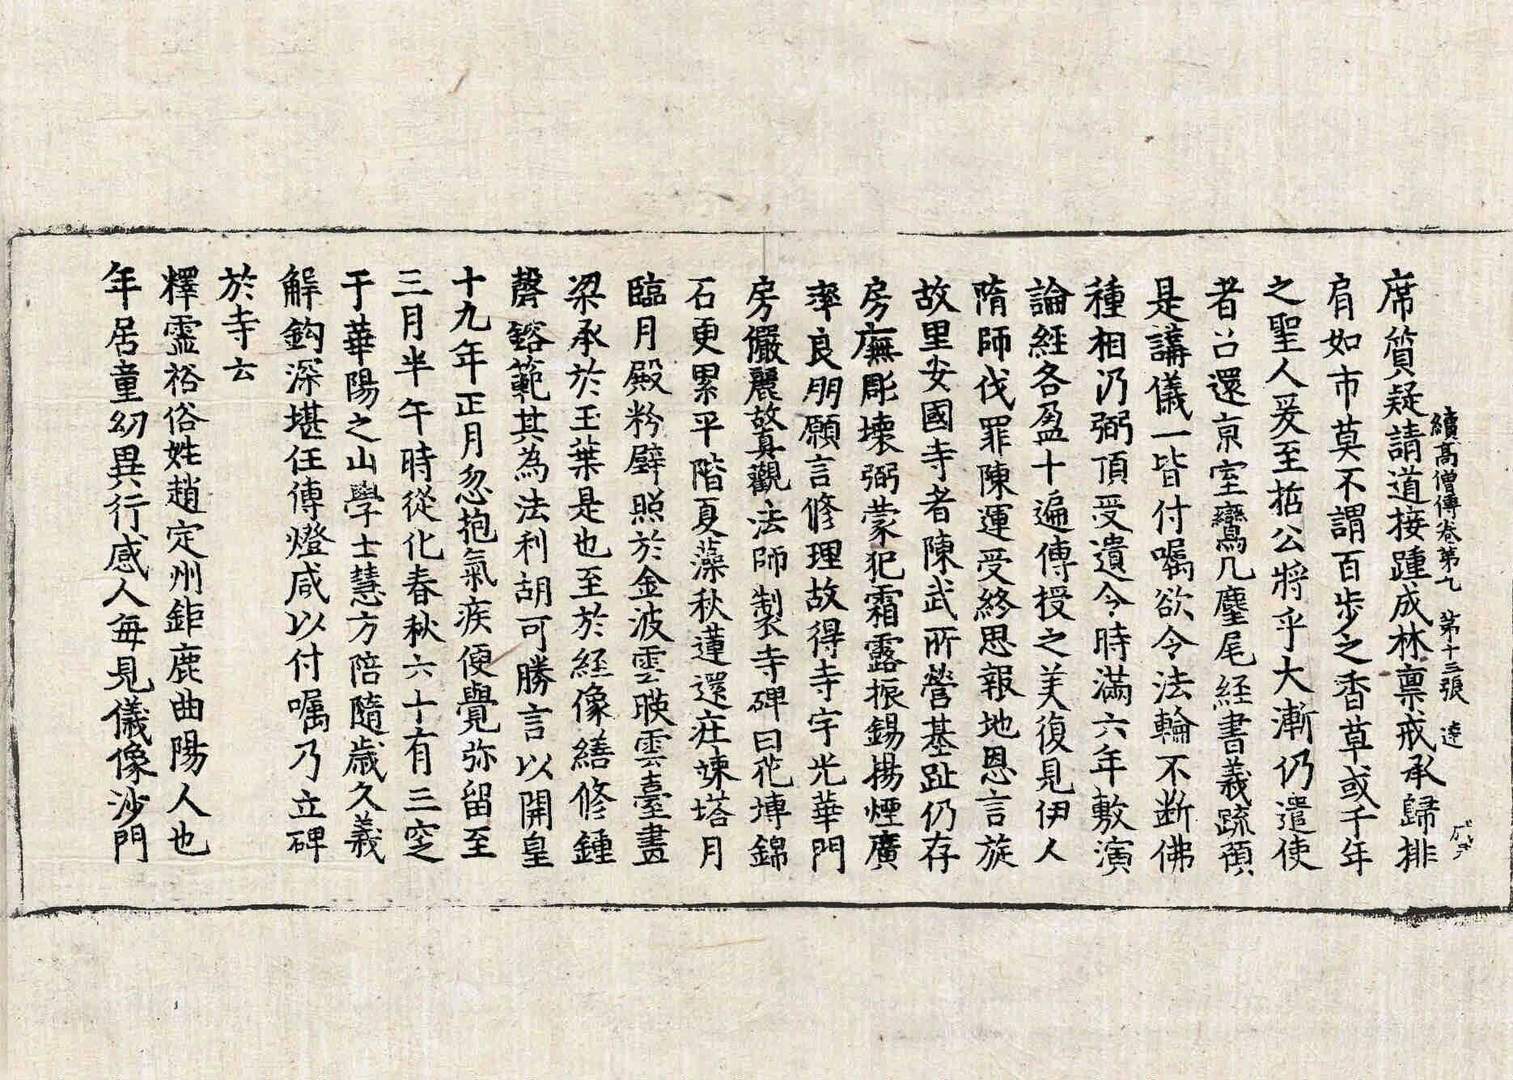 續高僧傳卷第九 第十三張 逵
席質疑請道接踵成林禀戒承歸排
肩如市莫不謂百步之香草或千年
之聖人爰至祏公將乎大漸仍遣使
者召還京室鸞几麈尾経書義疏預
是講儀一皆付囑欲令法輪不断佛
種相乃弼頂受遺令時滿六年敷演
論経各盈十遍傳授之美復見伊人
隋師伐罪陳運受終思報地恩言旋
故里安國寺者陳武所營基趾仍存
房廡彫壞弼蒙犯霜露振錫揚煙廣
率良朋願言修理故得寺宇光華門
房儼麗故真觀法師製寺碑曰花塼錦
石更累平階夏藻秋蓮還莊竦塔月
臨月殿粉壁照於金波雲暎雲臺畫
梁承於玉葉是也至於経像繕修鍾
磬鎔範其為法利胡可勝言以開皇
十九年正月忽抱氣疾便覺弥留至
三月半午時從化春秋六十有三窆
于華陽之山學士慧方陪隨歲久義
解鈎深堪任傳燈咸以付囑乃立碑
於寺云
釋靈裕俗姓趙定州鉅鹿曲陽人也
年居童幼異行感人每見儀像沙門